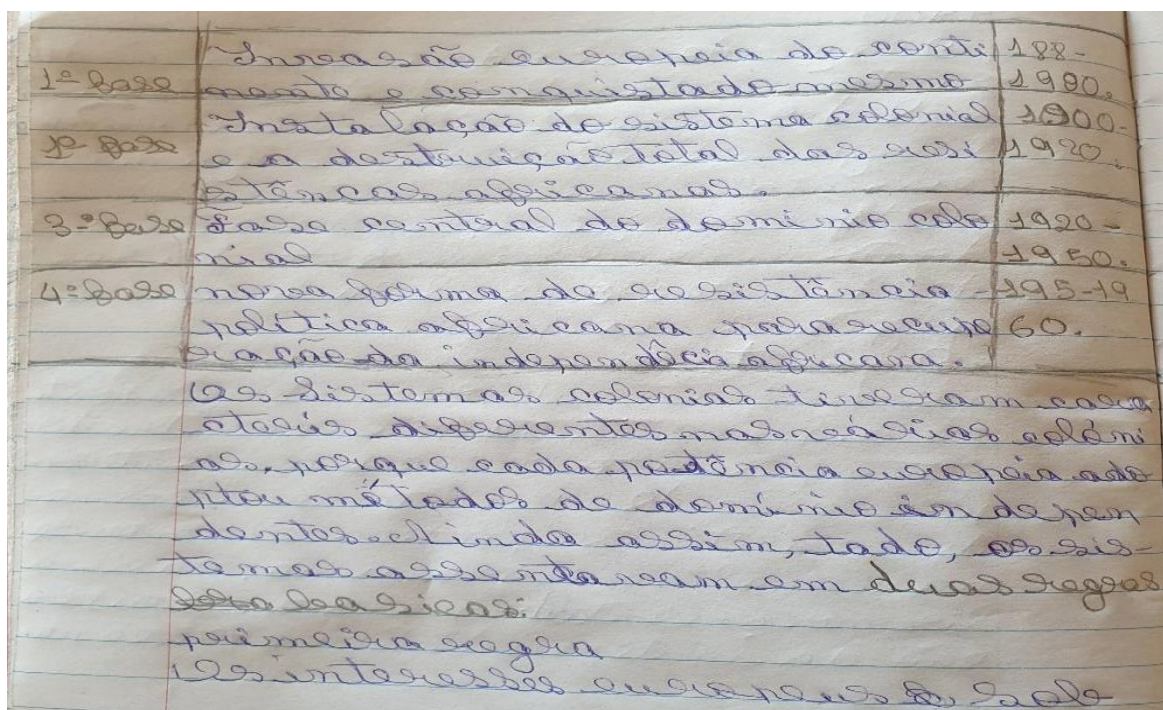 Invasão europeia do conti 188-
1ª fase nente e conquistado mesmo 1980.
Instalação do sistema colonial 1900-
1ª fase e a destruição total das resi 1920.
stêncas africanas.
3ª fase fase central do dominio colo 1920-
nial 1950.
4ª fase nova forma de resistência 195-19
política africana para recupe 60.
ração da independêcia africana.
Os sistemas colonias tiveram cara
cteris diferentes nas várias colóni
as, porque cada potência europeia ado
ptou métodos de domínio in depen
dentes. Ainda assim, todo, os sis-
temas assentavam em duas regras
basicas:
primeira regra
Os interesses europeus sob